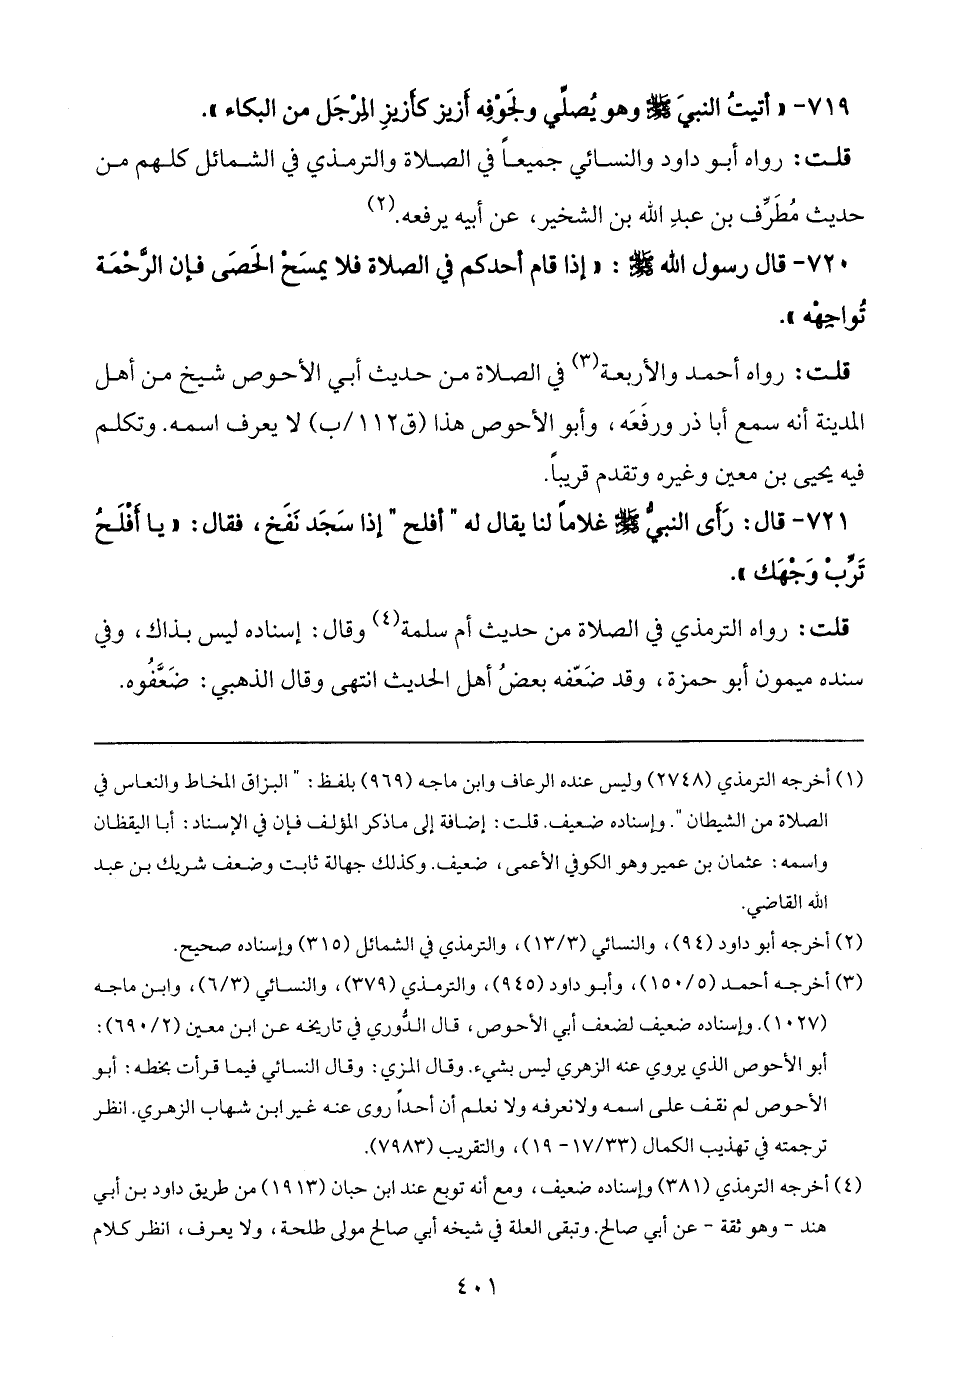 ٧١٩- « أتيتُ النبيَ ﷺ وهو يُصلِّي ولجَوْفِه أزيز كأزيزِ المِرْجَل من البكاء ».
قلت: رواه أبو داود والنسائي جميعاً في الصلاة والترمذي في الشمائل كلهم من
حديث مُطَرِّف بن عبدِ الله بن الشخير، عن أبيه يرفعه.(٢)
٧٢٠- قال رسول الله ﷺ : « إذا قام أحدكم في الصلاة فلا يمسَحْ الحَصَى فإن الرَّحْمَة
تُواجِهْه ».
قلت: رواه أحمد والأربعة(٣) في الصلاة من حديث أبي الأحوص شيخ من أهل
المدينة أنه سمع أبا ذر ورفَعَه، وأبو الأحوص هذا (ق١١٢/ب) لا يعرف اسمه. وتكلم
فيه يحيى بن معين وغيره وتقدم قريباً.
٧٢١- قال: رَأى النبيُّ ﷺ غلاماً لنا يقال له "أفلح" إذا سَجَد نَفَخ، فقال: « يا أَفْلَحُ
تَرِّبْ وَجْهَك ».
قلت: رواه الترمذي في الصلاة من حديث أم سلمة(٤) وقال: إسناده ليس بذاك، وفي
سنده ميمون أبو حمزة، وقد ضَعّفه بعضُ أهل الحديث انتهى وقال الذهبي: ضَعَّفُوه.
(١) أخرجه الترمذي (٢٧٤٨) وليس عنده الرعاف وابن ماجه (٩٦٩) بلفظ: "البزاق المخاط والنعاس في
الصلاة من الشيطان". وإسناده ضعيف. قلت: إضافة إلى ماذكر المؤلف فإن في الإسناد: أبا اليقظان
واسمه: عثمان بن عمير وهو الكوفي الأعمى، ضعيف. وكذلك جهالة ثابت وضعف شريك بن عبد
الله القاضي.
(٢) أخرجه أبو داود (٩٤)، والنسائي (١٣/٣)، والترمذي في الشمائل (٣١٥) وإسناده صحيح.
(٣) أخرجه أحمد (١٥٠/٥)، وأبو داود (٩٤٥)، والترمذي (٣٧٩)، والنسائي (٦/٣)، وابن ماجه
(١٠٢٧). وإسناده ضعيف لضعف أبي الأحوص، قال الدُّوري في تاريخه عن ابن معين (٦٩٠/٢):
أبو الأحوص الذي يروي عنه الزهري ليس بشيء. وقال المزي: وقال النسائي فيما قرأت بخطه: أبو
الأحوص لم نقف على اسمه ولانعرفه ولا نعلم أن أحداً روى عنه غير ابن شهاب الزهري. انظر
ترجمته في تهذيب الكمال (١٧/٣٣- ١٩)، والتقريب (٧٩٨٣).
(٤) أخرجه الترمذي (٣٨١) وإسناده ضعيف، ومع أنه توبع عند ابن حبان (١٩١٣) من طريق داود بن أبي
هند - وهو ثقة - عن أبي صالح. وتبقى العلة في شيخه أبي صالح مولى طلحة، ولا يعرف، انظر كلام
٤٠١